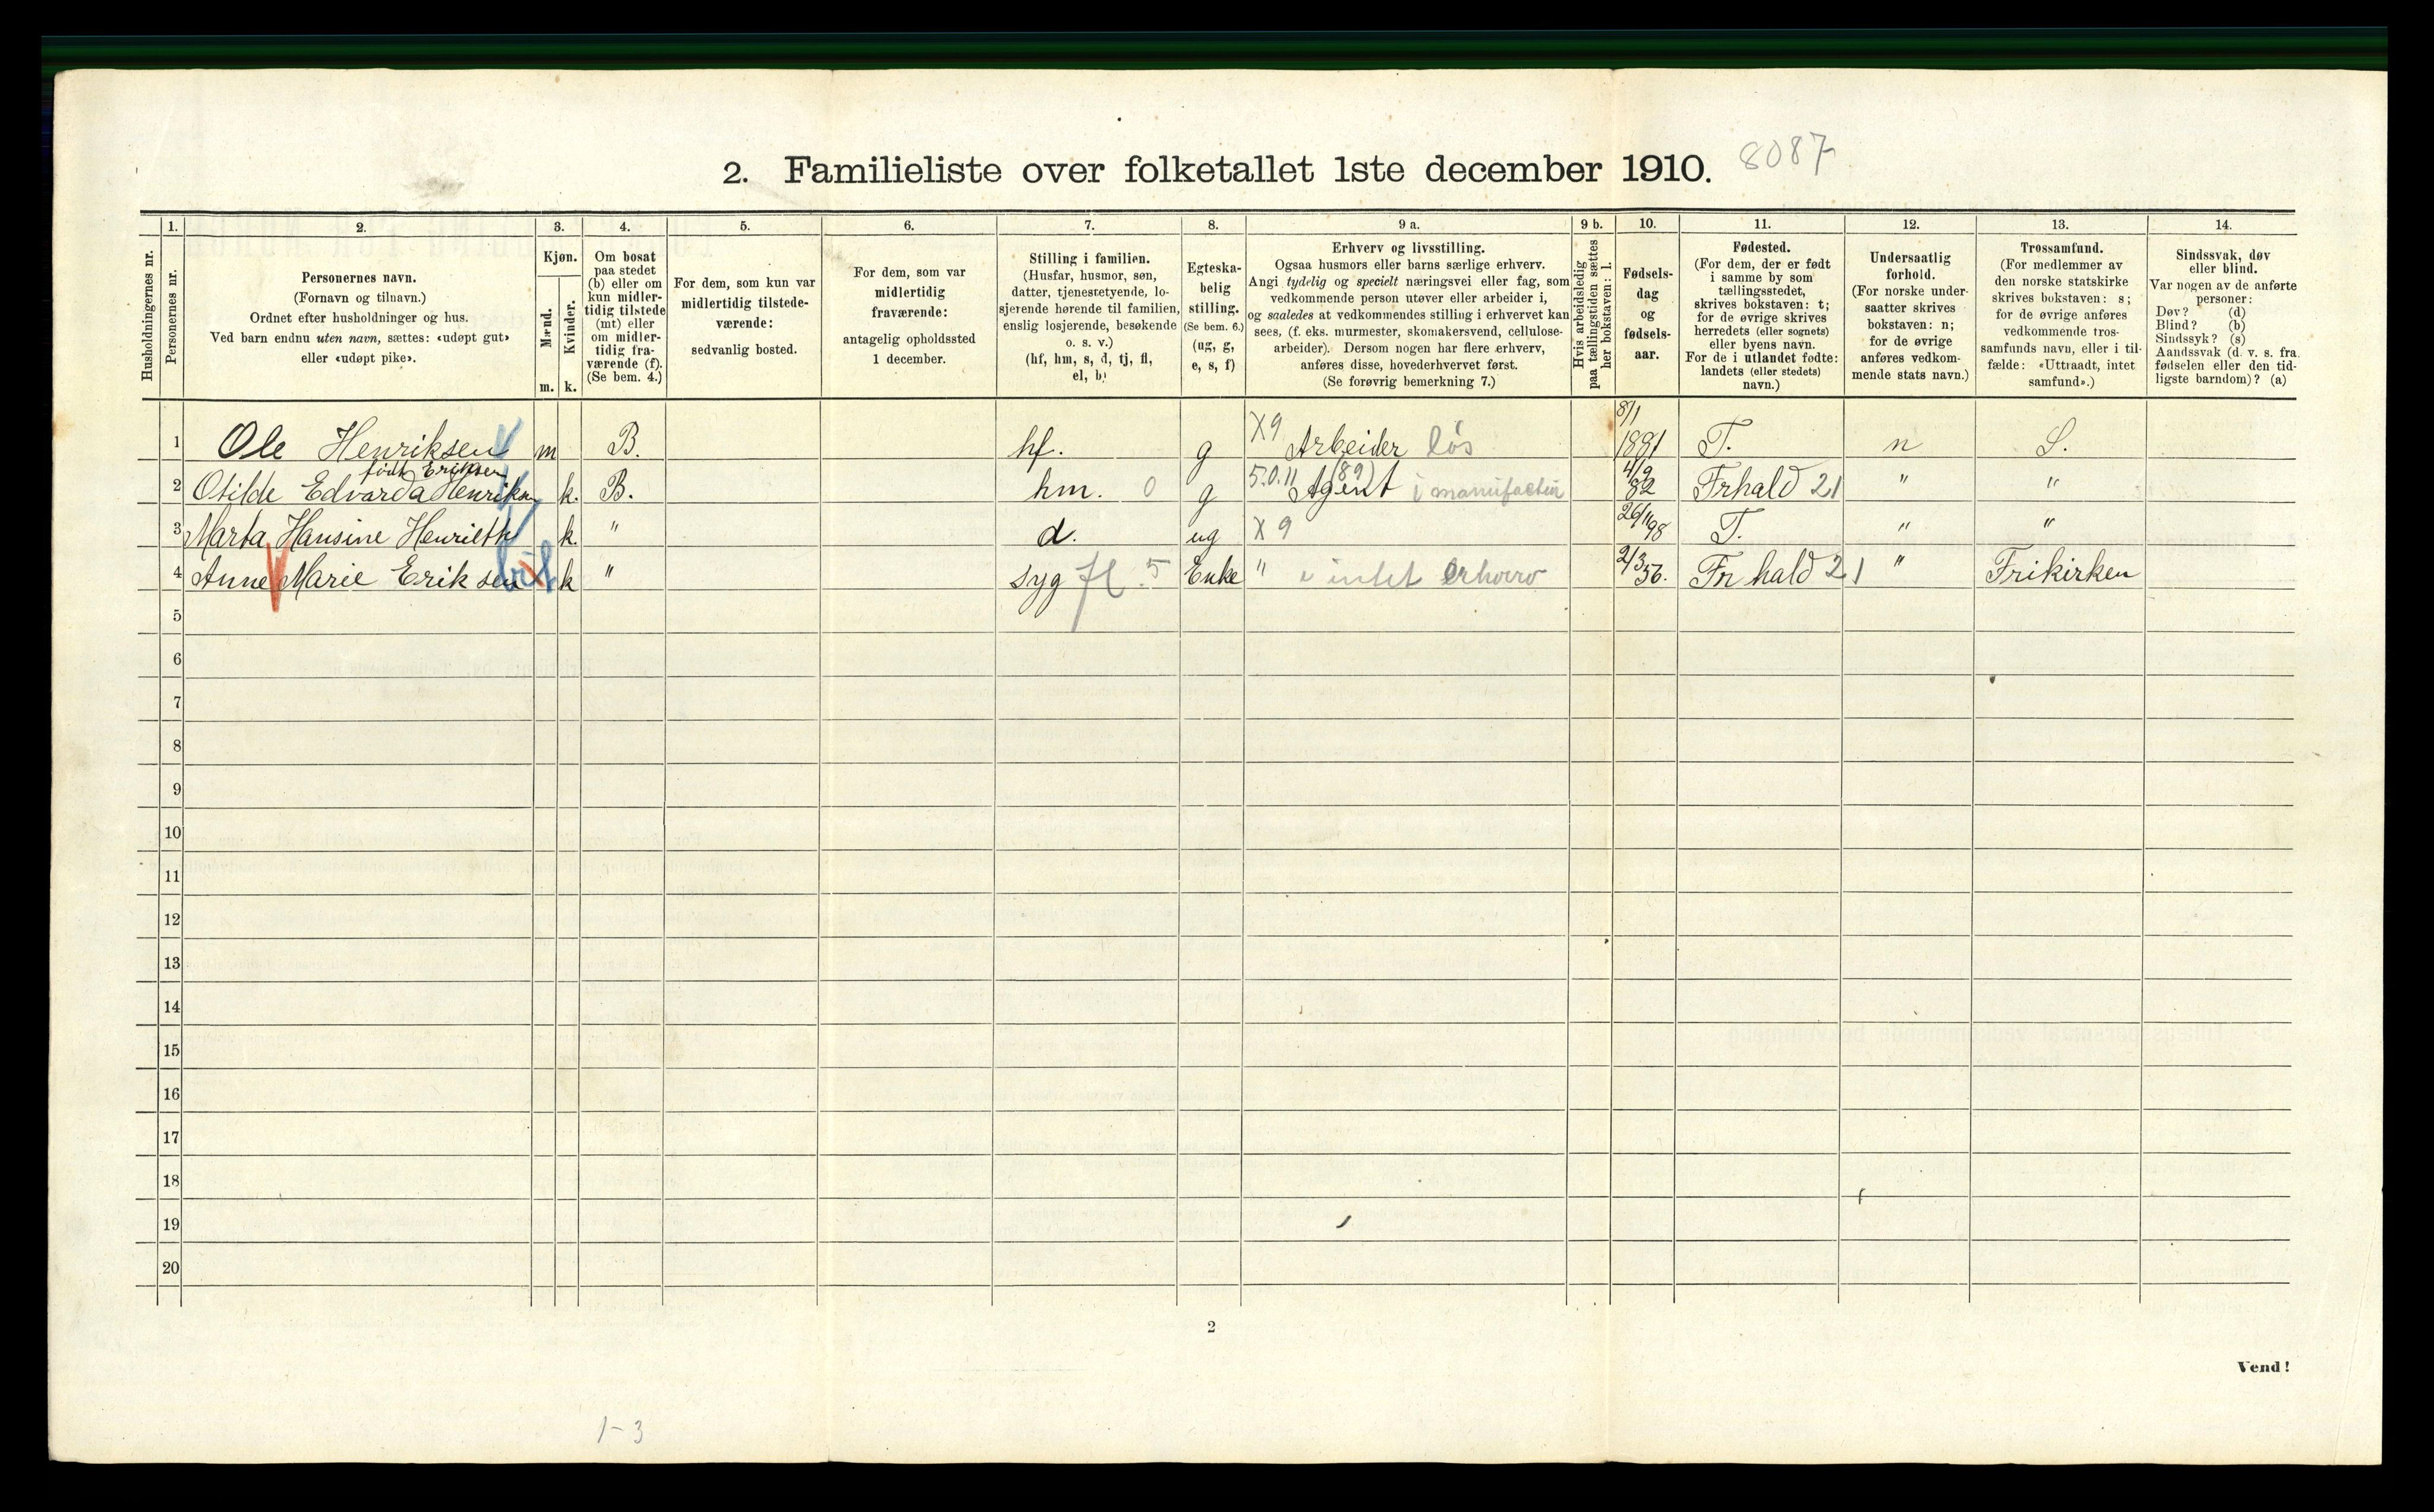 2. Familieliste over folketallet 1ste december 1910. 8087
Husholdningernes nr.
1.
Personernes nr.
2.
Personernes navn.
(Fornavn og tilnavn.)
Ordnet efter husholdninger og hus.
Ved barn endnu uten navn, sættes: «udøpt gut»
eller «udøpt pike».
3.
Kjøn.
Mænd.
m.
Kvinder.
k.
4.
Om bosat
paa stedet
(b) eller om
kun midler-
tidig tilstede
(mt) eller
om midler-
tidig fra-
værende (f).
(Se bem. 4.)
5.
For dem, som kun var
midlertidig tilstede-
værende:
sedvanlig bosted.
6.
For dem, som var
midlertidig
fraværende:
antagelig opholdssted
1 december.
7.
Stilling i familien.
(Husfar, husmor, søn,
datter, tjenestetyende, lo-
sjerende hørende til familien,
enslig losjerende, besøkende
o. s. v.)
(hf, hm, s, d, tj, fl,
el, b)
8.
Egteska-
belig
stilling.
(Se bem. 6.)
(ug, g,
e, s, f)
9 a.
Erhverv og livsstilling.
Ogsaa husmors eller barns særlige erhverv.
Angi tydelig og specielt næringsvei eller fag, som
vedkommende person utøver eller arbeider i,
og saaledes at vedkommendes stilling i erhvervet kan
sees, (f. eks. murmester, skomakersvend, cellulose-
arbeider). Dersom nogen har flere erhverv,
anføres disse, hovederhvervet først.
(Se forøvrig bemerkning 7.)
9 b.
Hvis arbeidsledig
paa tællingstiden sættes
her bokstaven: l.
10.
Fødsels-
dag
og
fødsels-
aar.
11.
Fødested.
(For dem, der er født
i samme by som
tællingsstedet,
skrives bokstaven: t;
for de øvrige skrives
herredets (eller sognets)
eller byens navn.
For de i utlandet fødte:
landets (eller stedets)
navn.)
12.
Undersaatlig
forhold.
(For norske under-
saatter skrives
bokstaven: n;
for de øvrige
anføres vedkom-
mende stats navn.)
13.
Trossamfund.
(For medlemmer av
den norske statskirke
skrives bokstaven: s;
for de øvrige anføres
vedkommende tros-
samfunds navn, eller i til-
fælde: «Uttraadt, intet
samfund».)
14.
Sindssvak, døv
eller blind.
Var nogen av de anførte
personer:
Døv? (d)
Blind? (b)
Sindssyk? (s)
Aandssvak (d. v. s. fra
fødselen eller den tid-
ligste barndom)? (a)
1 Ole Henriksen m B. hf. g X9 Arbeider løs 8/1 1881 T. n S.
født Eriksen
2 Otilde Edvarda Henriksen k. B. hm. 0 g 5.0.11 (89) Agent i manufactur 4/9 82 Frhald 21 " "
3 Marta Hansine Henriette k. " d. ug X 9 26/11 98 T. " "
4 Anne Marie Eriksen k " syg fl. 5 Enke " i intet erhverv 2/3 56. Fr hald 21 " Frikirken
5
6
7
8
9
10
11
12
13
14
15
16
17
18
19
20
2
Vend!
1-3